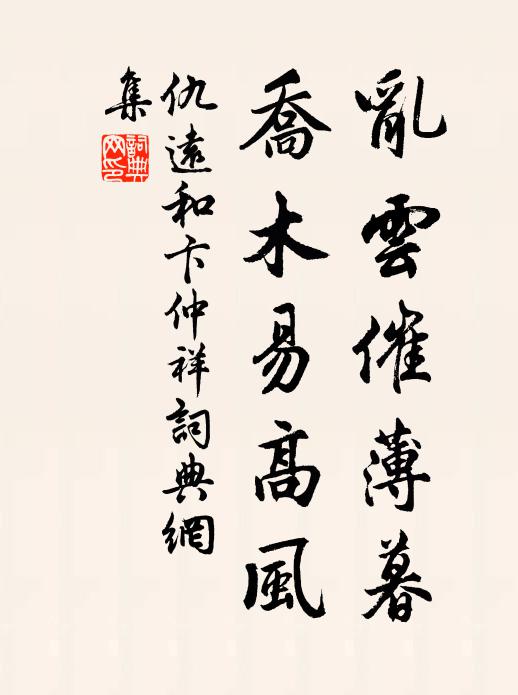 亂雲催薄暮
喬木易高風
仇遠和卞仲祥詞典網
集
詞典網印